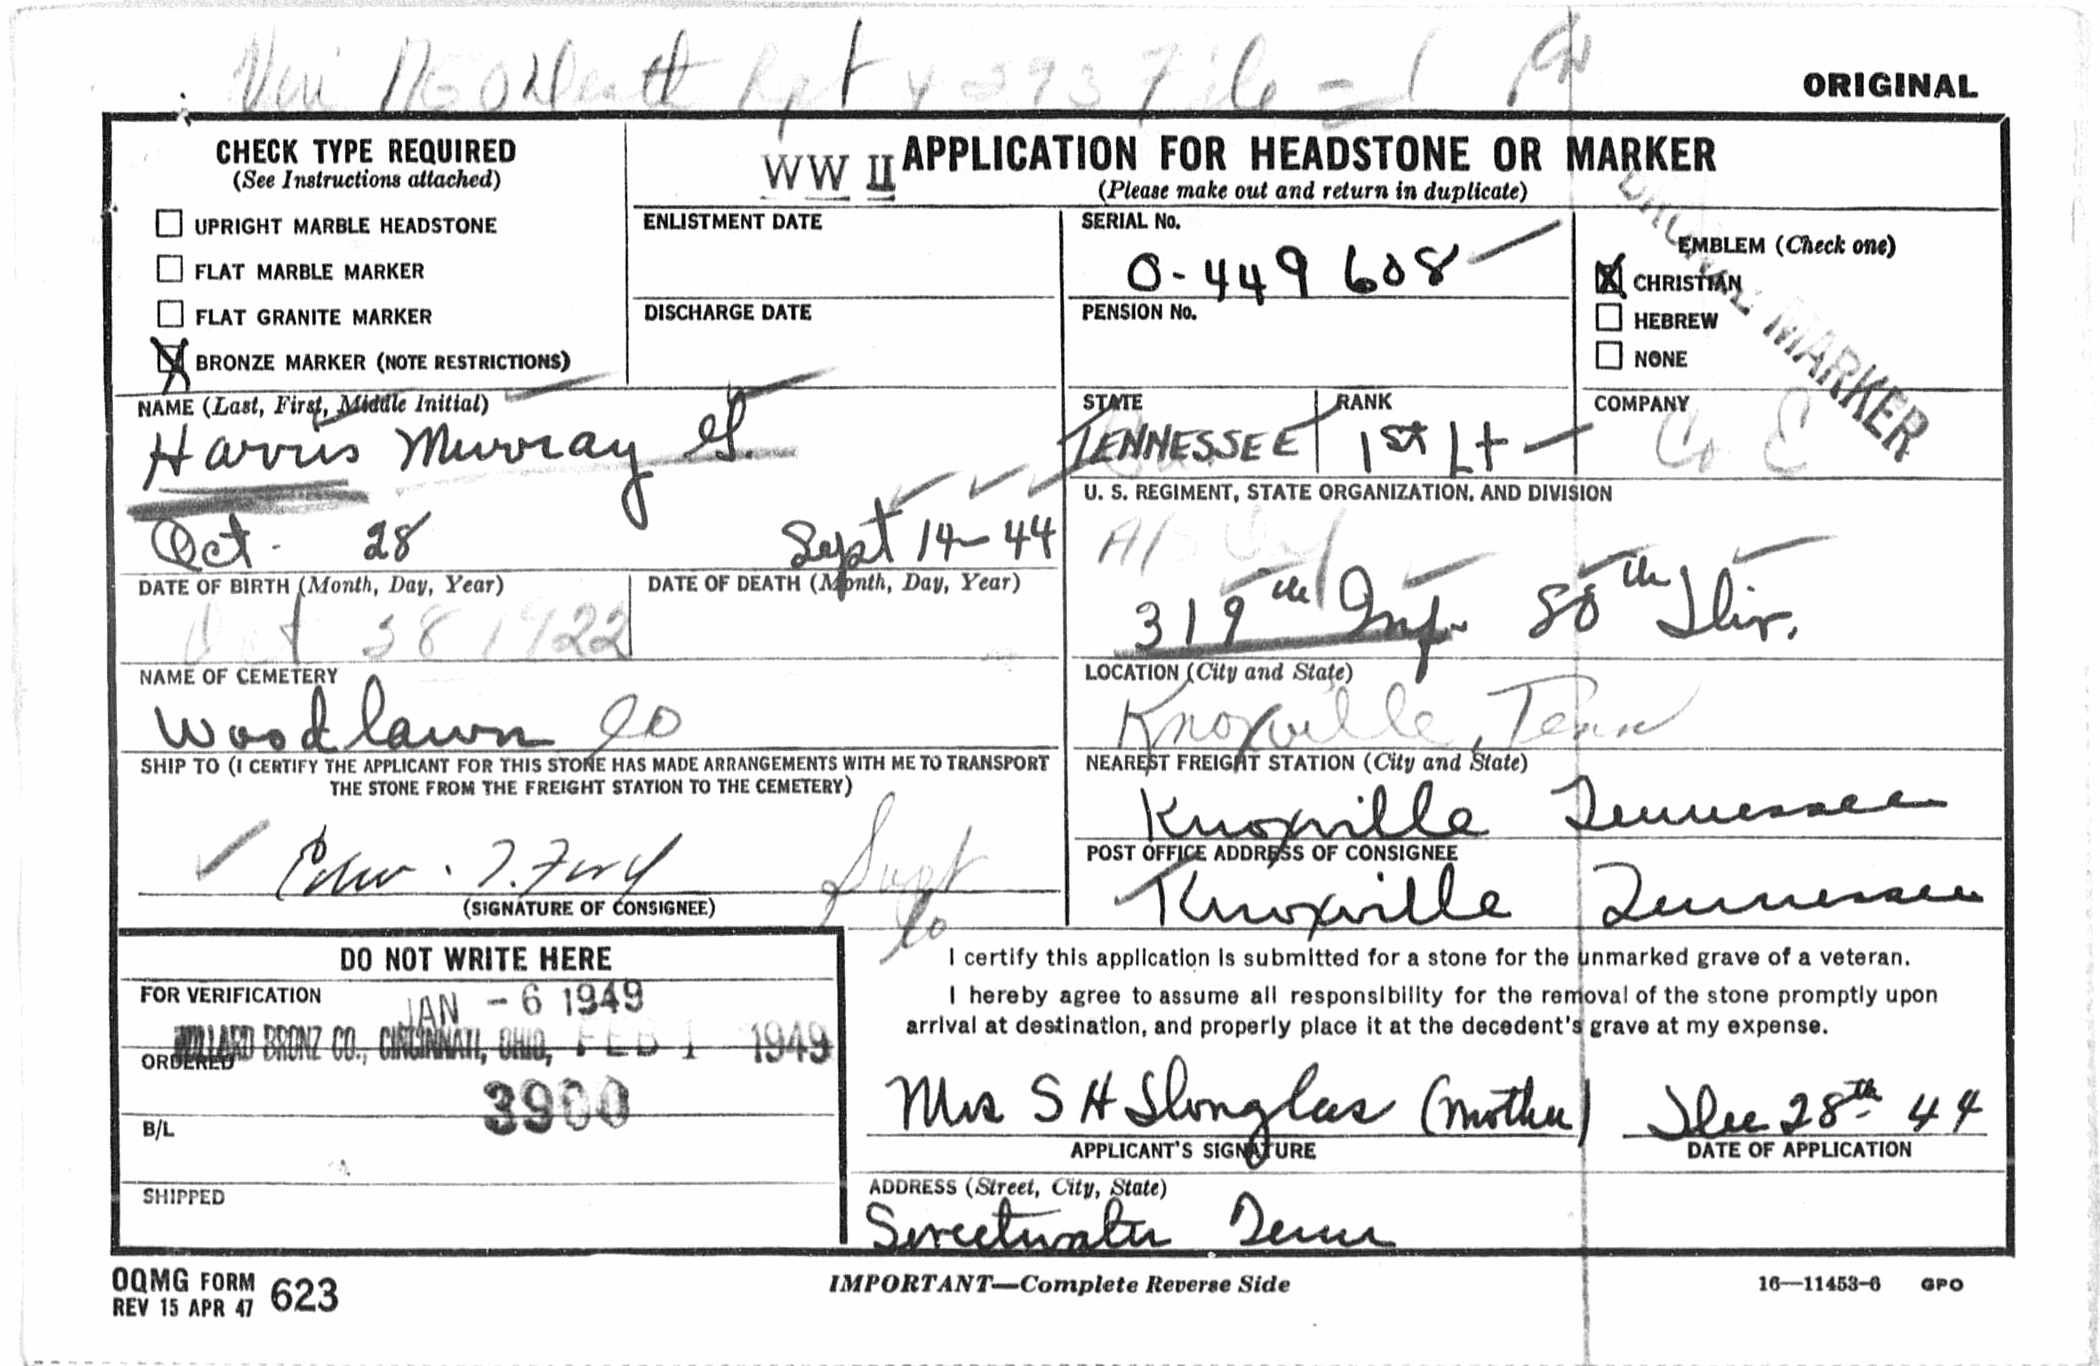 ORIGINAL
CHECK TYPE REQUIRED
(See Instructions attached)
UPRIGHT MARBLE HEADSTONE
FLAT MARBLE MARKER
FLAT GRANITE MARKER
BRONZE MARKER (NOTE RESTRICTIONS)
WW II APPLICATION FOR HEADSTONE OR MARKER
(Please make out and return in duplicate)
ENLISTMENT DATE
DISCHARGE DATE
SERIAL No.
O-449608
PENSION No.
EMBLEM (Check one)
CHRISTIAN
HEBREW
NONE
MARKER
NAME (Last, First, Middle Initial)
Harris Murray G.
STATE
TENNESSEE
RANK
1st Lt
COMPANY
Co E
Oct. 28
Sept 14-44
DATE OF BIRTH (Month, Day, Year)
Oct 28 1922
DATE OF DEATH (Month, Day, Year)
U. S. REGIMENT, STATE ORGANIZATION, AND DIVISION
319th Inf. 80th Div.
NAME OF CEMETERY
Woodlawn Co
LOCATION (City and State)
Knoxville, Tenn
SHIP TO (I CERTIFY THE APPLICANT FOR THIS STONE HAS MADE ARRANGEMENTS WITH ME TO TRANSPORT
THE STONE FROM THE FREIGHT STATION TO THE CEMETERY)
NEAREST FREIGHT STATION (City and State)
Knoxville Tennessee
Supt
(SIGNATURE OF CONSIGNEE)
POST OFFICE ADDRESS OF CONSIGNEE
Knoxville Tennessee
DO NOT WRITE HERE
FOR VERIFICATION
JAN - 6 1949
BRONZ CO., CINCINNATI, OHIO, FEB 1 1949
ORDERED
3900
B/L
SHIPPED
I certify this application is submitted for a stone for the unmarked grave of a veteran.
I hereby agree to assume all responsibility for the removal of the stone promptly upon
arrival at destination, and properly place it at the decedent's grave at my expense.
Mrs S H Douglas (Mother) Dec 28th 44
APPLICANT'S SIGNATURE
DATE OF APPLICATION
ADDRESS (Street, City, State)
Sweetwater Tenn
OQMG FORM 623
REV 15 APR 47
IMPORTANT—Complete Reverse Side
16—11453-6 GPO